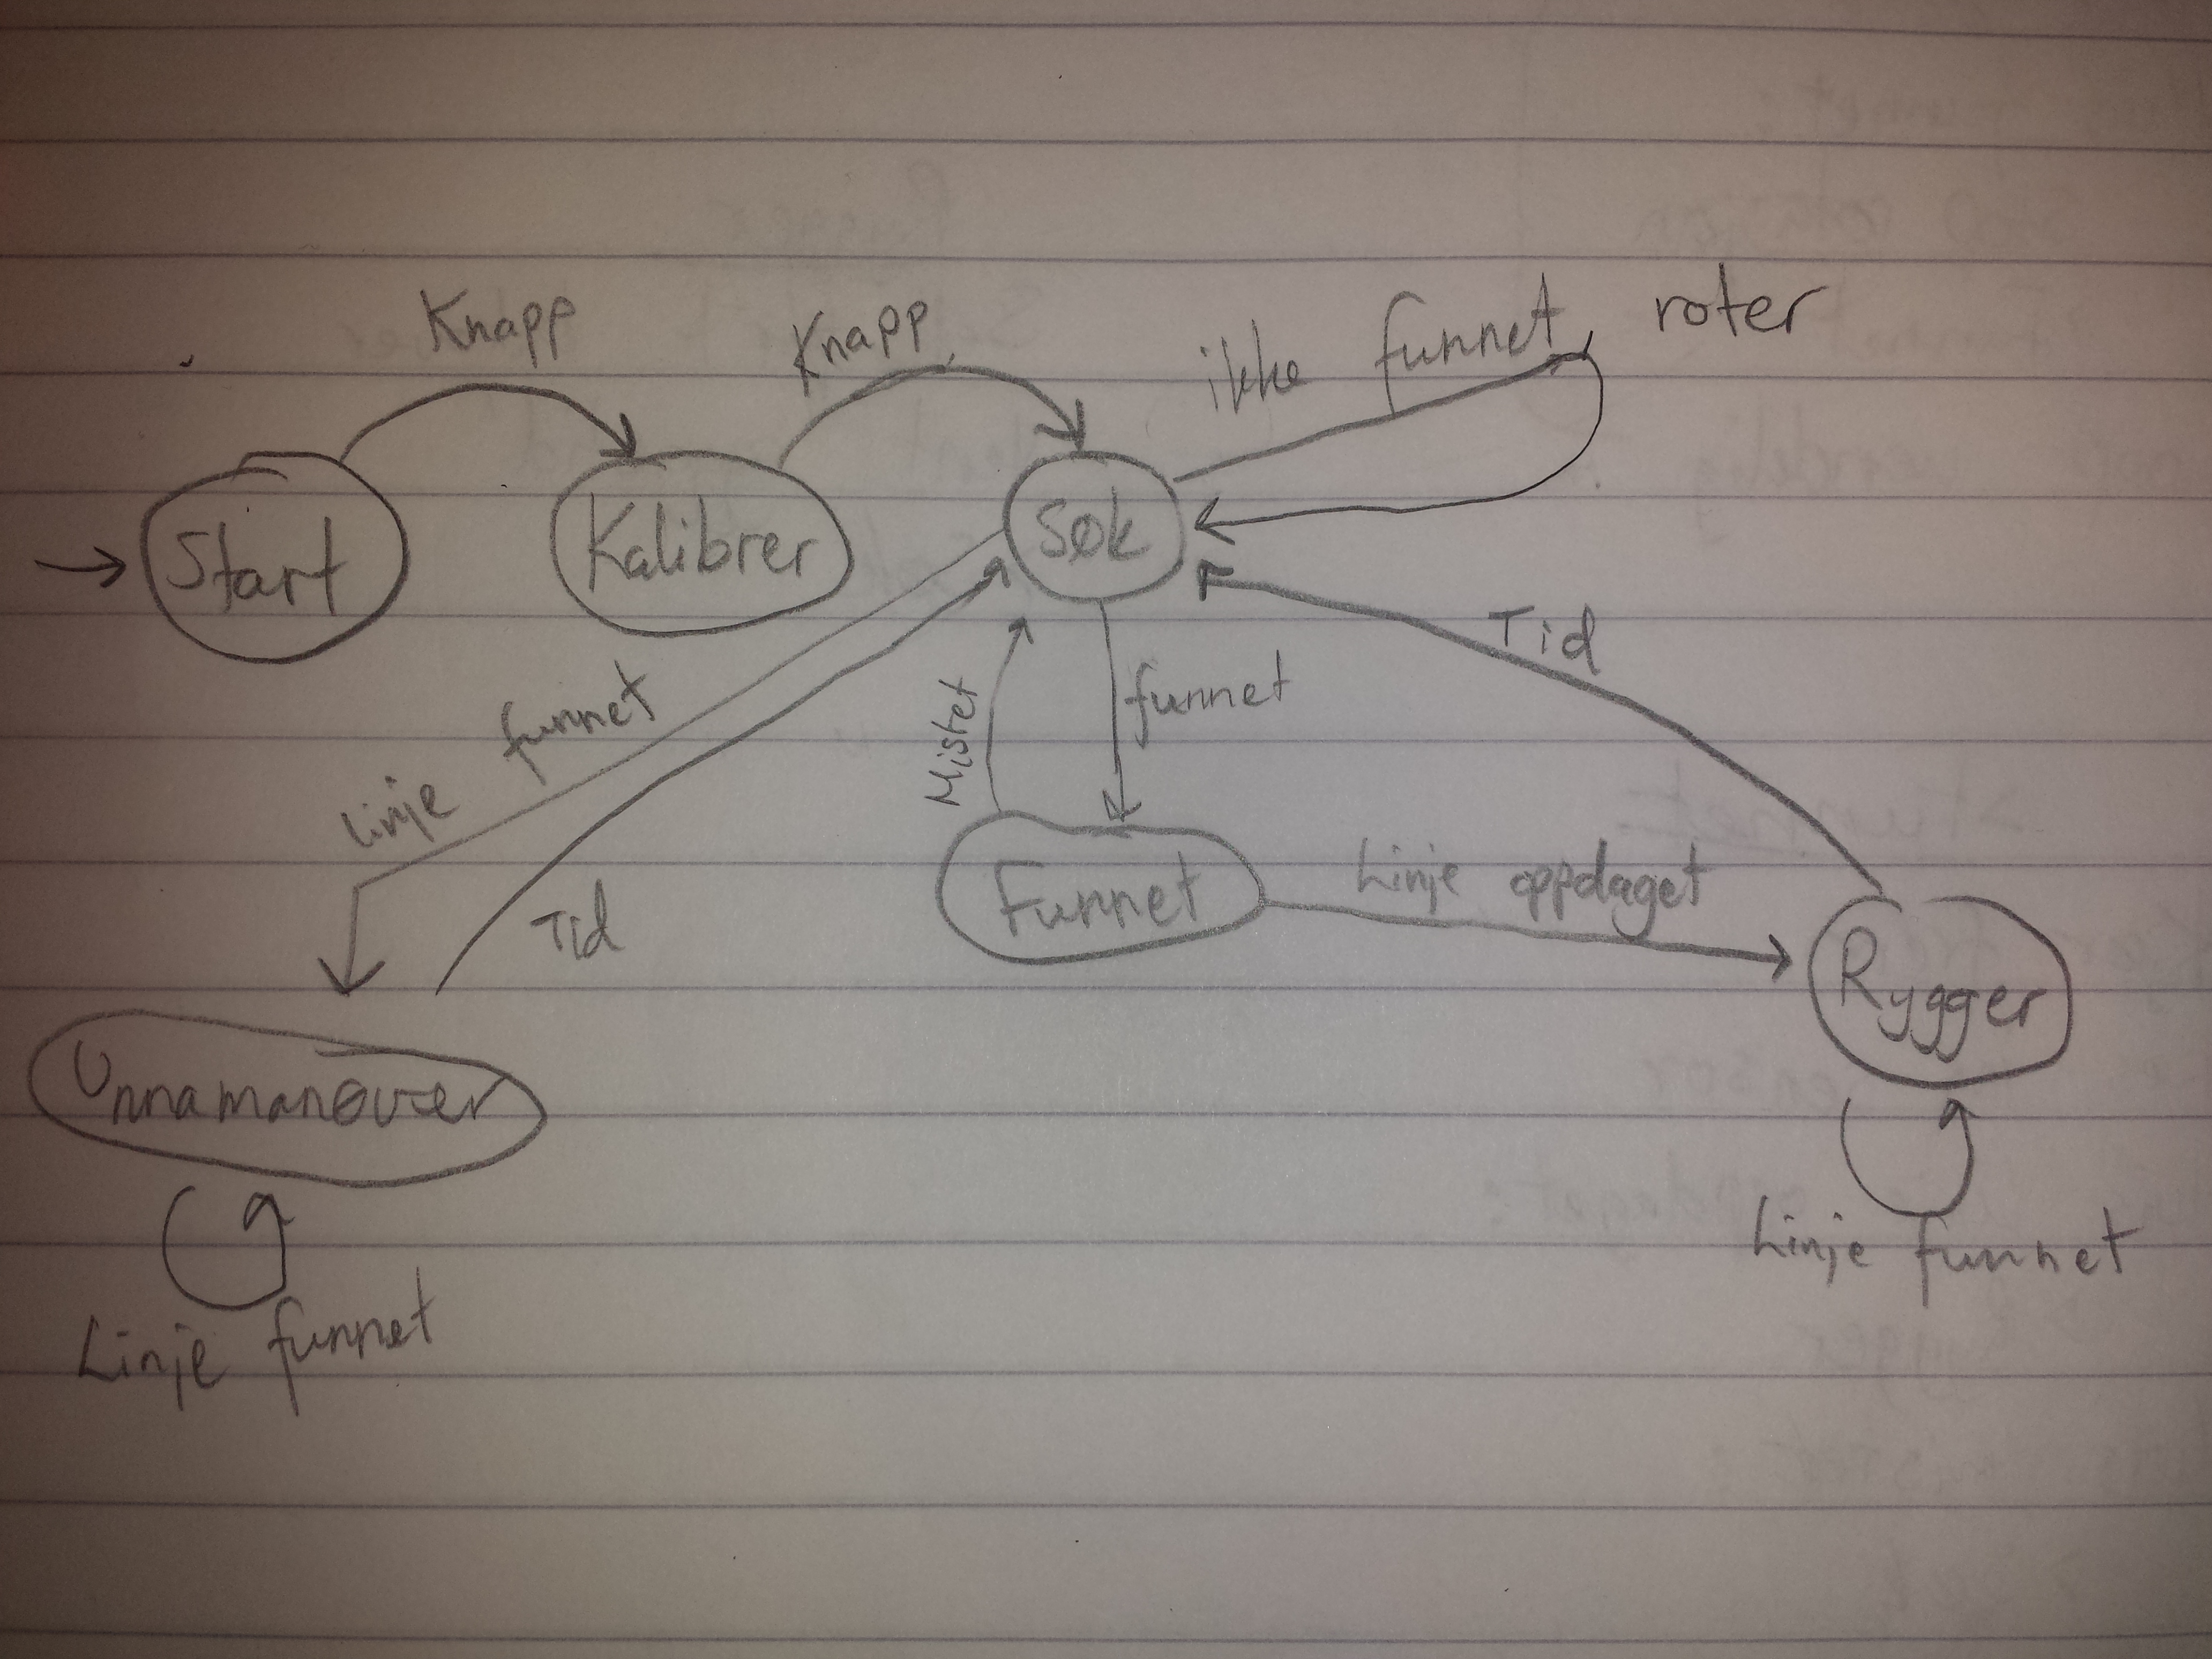 Knapp
Knapp
ikke funnet, roter
Start
Kalibrer
Søk
Tid
linje funnet
Mistet
funnet
Tid
Funnet
Linje oppdaget
Rygger
Unnamanøver
Linje funnet
Linje funnet